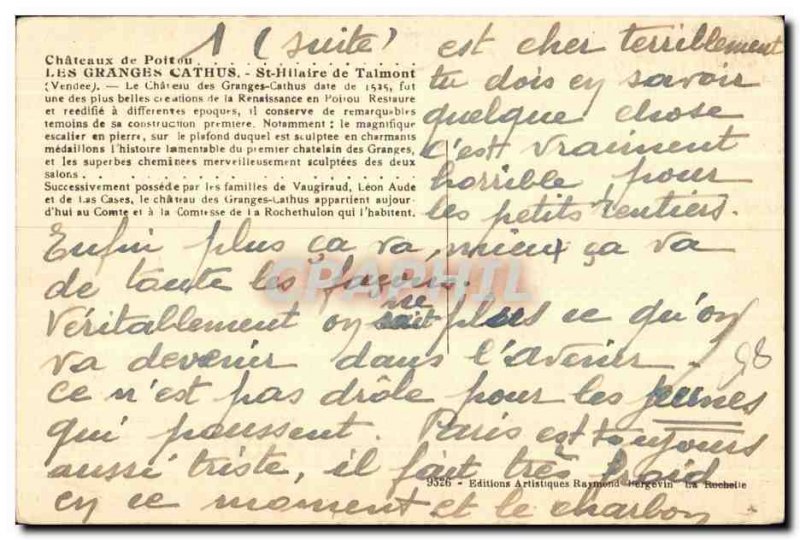 1 (suite)
Châteaux de Poitou
LES GRANGES CATHUS. - St-Hilaire de Talmont
(Vendée). — Le Château des Granges-Cathus date de 1525, fut
une des plus belles créations de la Renaissance en Poitou Restauré
et réédifié à différentes époques, il conserve de remarquables
témoins de sa construction première. Notamment : le magnifique
escalier en pierre, sur le plafond duquel est sculptée en charmants
médaillons l'histoire lamentable du premier châtelain des Granges,
et les superbes cheminées merveilleusement sculptées des deux
salons
Successivement possédé par les familles de Vaugiraud, Léon Aude
et de Las Cases, le château des Granges-Cathus appartient aujour-
d'hui au Comte et à la Comtesse de La Rochethulon qui l'habitent.
est cher terriblement
tu dois en savoir
quelque chose
c'est vraiment
horrible pour
les petits rentiers.
Enfin plus ça va, mieux ça va
de toute les façons.
Véritablement on ne sait plus ce qu'on
va devenir dans l'avenir
ce n'est pas drôle pour les jeunes
qui poussent. Paris est toujours
aussi triste, il fait très froid
en ce moment et le charbon
98
9526 - Editions Artistiques Raymond Bergevin La Rochelle
CPAPHIL